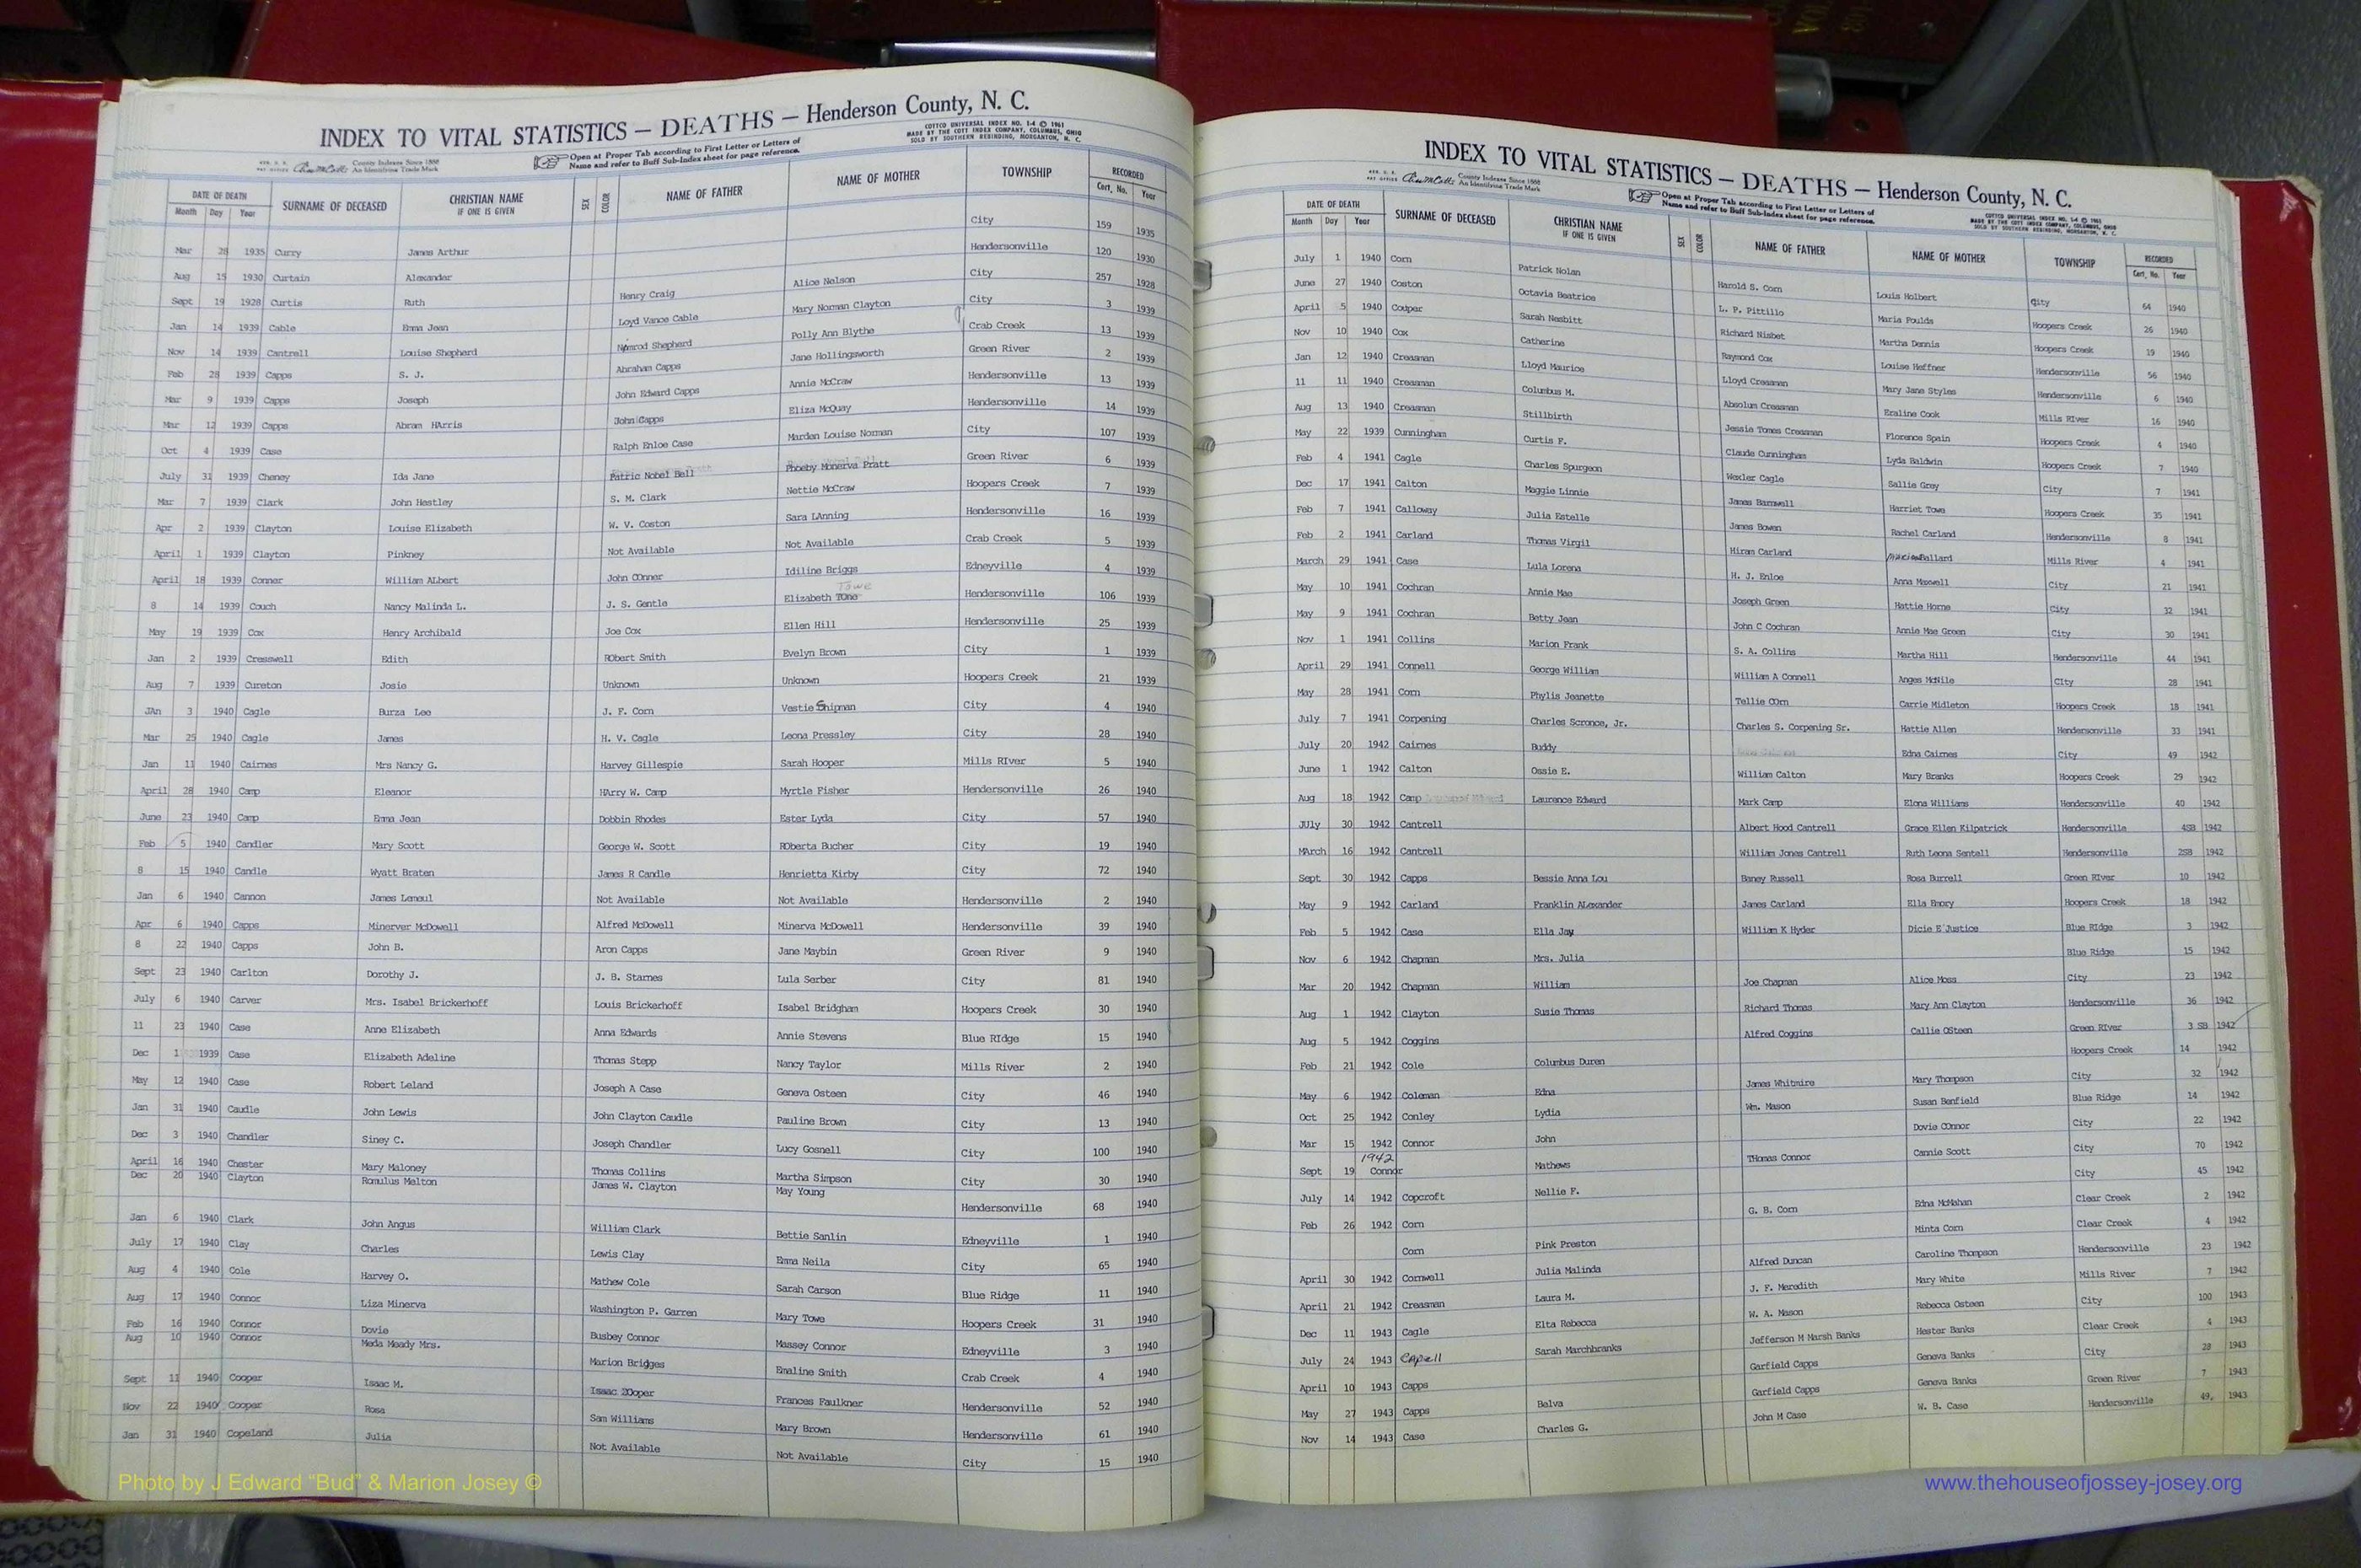 INDEX TO VITAL STATISTICS — DEATHS — Henderson County, N. C.
COTTCO UNIVERSAL INDEX NO. 1-4 © 1961
MADE BY THE COTT INDEX COMPANY, COLUMBUS, OHIO
SOLD BY SOUTHERN REBINDING, MORGANTON, N. C.
County Indexes Since 1888
An Identifying Trade Mark
Open at Proper Tab according to First Letter or Letters of
Name and refer to Buff Sub-Index sheet for page reference.
DATE OF DEATH SURNAME OF DECEASED CHRISTIAN NAME IF ONE IS GIVEN SEX COLOR NAME OF FATHER NAME OF MOTHER TOWNSHIP RECORDED
Month Day Year Cert. No. Year
Mar 28 1935 Curry James Arthur City 159 1935
Aug 15 1930 Curtain Alexander Hendersonville 120 1930
Sept 19 1928 Curtis Ruth Henry Craig Alice Nelson City 257 1928
Jan 14 1939 Cable Emma Jean Loyd Vance Cable Mary Norman Clayton City 3 1939
Nov 14 1939 Cantrell Louise Shepherd Nimrod Shepherd Polly Ann Blythe Crab Creek 13 1939
Feb 28 1939 Capps S. J. Abraham Capps Jane Hollingsworth Green River 2 1939
Mar 9 1939 Capps Joseph John Edward Capps Annie McCraw Hendersonville 13 1939
Mar 12 1939 Capps Abram HArris John Capps Eliza McQuay Hendersonville 14 1939
Oct 4 1939 Case Ralph Enloe Case Marden Louise Norman City 107 1939
July 31 1939 Cheney Ida Jane Patric Nobel Bell Phoeby Monerva Pratt Green River 6 1939
Mar 7 1939 Clark John Hestley S. M. Clark Nettie McCraw Hoopers Creek 7 1939
Apr 2 1939 Clayton Louise Elizabeth W. V. Coston Sara LAnning Hendersonville 16 1939
April 1 1939 Clayton Pinkney Not Available Not Available Crab Creek 5 1939
April 18 1939 Connor William ALbert John COnner Idiline Briggs Edneyville 4 1939
Towe
8 14 1939 Couch Nancy Malinda L. J. S. Gentle Elizabeth TOne Hendersonville 106 1939
May 19 1939 Cox Henry Archibald Joe Cox Ellen Hill Hendersonville 25 1939
Jan 2 1939 Cresswell Edith RObert Smith Evelyn Brown City 1 1939
Aug 7 1939 Cureton Josie Unknown Unknown Hoopers Creek 21 1939
JAn 3 1940 Cagle Burza Lee J. F. Corn Vestie Shipman City 4 1940
Mar 25 1940 Cagle James H. V. Cagle Leona Pressley City 28 1940
Jan 11 1940 Cairnes Mrs Nancy G. Harvey Gillespie Sarah Hooper Mills RIver 5 1940
April 28 1940 Camp Eleanor HArry W. Camp Myrtle Fisher Hendersonville 26 1940
June 23 1940 Camp Emma Jean Dobbin Rhodes Ester Lyda City 57 1940
Feb 5 1940 Candler Mary Scott George W. Scott ROberta Bucher City 19 1940
8 15 1940 Candle Wyatt Braten James R Candle Henrietta Kirby City 72 1940
Jan 6 1940 Cannon James Lemeul Not Available Not Available Hendersonville 2 1940
Apr 6 1940 Capps Minerver McDowell Alfred McDowell Minerva McDowell Hendersonville 39 1940
8 22 1940 Capps John B. Aron Capps Jane Maybin Green River 9 1940
Sept 23 1940 Carlton Dorothy J. J. B. Starnes Lula Serber City 81 1940
July 6 1940 Carver Mrs. Isabel Brickerhoff Louis Brickerhoff Isabel Bridgham Hoopers Creek 30 1940
11 23 1940 Case Anne Elizabeth Anna Edwards Annie Stevens Blue RIdge 15 1940
Dec 1 1939 Case Elizabeth Adeline Thomas Stepp Nancy Taylor Mills River 2 1940
May 12 1940 Case Robert Leland Joseph A Case Geneva Osteen City 46 1940
Jan 31 1940 Caudle John Lewis John Clayton Caudle Pauline Brown City 13 1940
Dec 3 1940 Chandler Siney C. Joseph Chandler Lucy Gosnell City 100 1940
April 16 1940 Chester Mary Maloney Thomas Collins Martha Simpson City 30 1940
Dec 20 1940 Clayton Romulus Melton James W. Clayton May Young Hendersonville 68 1940
Jan 6 1940 Clark John Angus William Clark Bettie Sanlin Edneyville 1 1940
July 17 1940 Clay Charles Lewis Clay Emma Neila City 65 1940
Aug 4 1940 Cole Harvey O. Mathew Cole Sarah Carson Blue Ridge 11 1940
Aug 17 1940 Connor Liza Minerva Washington P. Garren Mary Towe Hoopers Creek 31 1940
Feb 16 1940 Connor Dovie Busbey Connor Massey Connor Edneyville 3 1940
Aug 10 1940 Connor Meda Meady Mrs. Marion Bridges Emaline Smith Crab Creek 4 1940
Sept 11 1940 Cooper Isaac M. Isaac 2Ooper Frances Faulkner Hendersonville 52 1940
Nov 22 1940 Cooper Rosa Sam Williams Mary Brown Hendersonville 61 1940
Jan 31 1940 Copeland Julia Not Available Not Available City 15 1940
Photo by J Edward “Bud” & Marion Josey ©
INDEX TO VITAL STATISTICS — DEATHS — Henderson County, N. C.
County Indexes Since 1888
An Identifying Trade Mark
Open at Proper Tab according to First Letter or Letters of
Name and refer to Buff Sub-Index sheet for page reference.
COTTCO UNIVERSAL INDEX NO. 1-4 © 1961
MADE BY THE COTT INDEX COMPANY, COLUMBUS, OHIO
SOLD BY SOUTHERN REBINDING, MORGANTON, N. C.
DATE OF DEATH SURNAME OF DECEASED CHRISTIAN NAME IF ONE IS GIVEN SEX COLOR NAME OF FATHER NAME OF MOTHER TOWNSHIP RECORDED
Month Day Year Cert. No. Year
July 1 1940 Corn Patrick Nolan Harold S. Corn Louis Holbert City 64 1940
June 27 1940 Coston Octavia Beatrice L. P. Pittillo Maria Foulds Hoopers Creek 26 1940
April 5 1940 Couper Sarah Nesbitt Richard Nisbet Martha Dennis Hoopers Creek 19 1940
Nov 10 1940 Cox Catherine Raymond Cox Louise Heffner Hendersonville 56 1940
Jan 12 1940 Creasman Lloyd Maurice Lloyd Creasman Mary Jane Styles Hendersonville 6 1940
11 11 1940 Creasman Columbus M. Absolum Creasman Emaline Cook Mills RIver 16 1940
Aug 13 1940 Creasman Stillbirth Jessie Tomes Creasman Florence Spain Hoopers Creek 4 1940
May 22 1939 Cunningham Curtis F. Claude Cunningham Lyda Baldwin Hoopers Creek 7 1940
Feb 4 1941 Cagle Charles Spurgeon Wexler Cagle Sallie Grey City 7 1941
Dec 17 1941 Calton Maggie Linnie James Barnwell Harriet Towe Hoopers Creek 35 1941
Feb 7 1941 Calloway Julia Estelle James Bowen Rachel Carland Hendersonville 8 1941
Feb 2 1941 Carland Thomas Virgil Hiram Carland Ballard Mills River 4 1941
March 29 1941 Case Lula Lorena H. J. Enloe Anna Maxwell City 21 1941
May 10 1941 Cochran Annie Mae Joseph Green Hattie Horne City 32 1941
May 9 1941 Cochran Betty Jean John C Cochran Annie Mae Green City 30 1941
Nov 1 1941 Collins Marion Frank S. A. Collins Martha Hill Hendersonville 44 1941
April 29 1941 Connell George William William A Connell Anges McNile CIty 28 1941
May 28 1941 Corn Phylis Jeanette Tellie COrn Carrie Midleton Hoopers Creek 18 1941
July 7 1941 Corpening Charles Scronce, Jr. Charles S. Corpening Sr. Hattie Allen Hendersonville 33 1941
July 20 1942 Cairnes Buddy Edna Cairnes City 49 1942
June 1 1942 Calton Ossie E. William Calton Mary Branks Hoopers Creek 29 1942
Aug 18 1942 Camp Laurence Edward Mark Camp Elona Williams Hendersonville 40 1942
JUly 30 1942 Cantrell Albert Hood Cantrell Grace Ellen Kilpatrick Hendersonville 4SB 1942
MArch 16 1942 Cantrell William Jones Cantrell Ruth Leona Sentell Hendersonville 2SB 1942
Sept 30 1942 Capps Bessie Anna Lou Boney Russell Rosa Burrell Green RIver 10 1942
May 9 1942 Carland Franklin ALexander James Carland Ella Emory Hoopers Creek 18 1942
Feb 5 1942 Case Ella Jay William K Hyder Dicie E Justice Blue RIdge 3 1942
Nov 6 1942 Chapman Mrs. Julia Blue Ridge 15 1942
Mar 20 1942 Chapman William Joe Chapman Alice Moss City 23 1942
Aug 1 1942 Clayton Susie Thomas Richard Thomas Mary Ann Clayton Hendersonville 36 1942
Aug 5 1942 Coggins Alfred Coggins Callie OSteen Green RIver 3 SB 1942
Feb 21 1942 Cole Columbus Duren Hoopers Creek 14 1942
May 6 1942 Coleman Edna James Whitmire Mary Thompson City 32 1942
Oct 25 1942 Conley Lydia Wm. Mason Susan Benfield Blue Ridge 14 1942
Mar 15 1942 Connor John Dovie COnnor City 22 1942
1942
Sept 19 Connor Mathews THomas Connor Cannie Scott City 70 1942
July 14 1942 Copcroft Nellie F. City 45 1942
Feb 26 1942 Corn G. B. Corn Edna McMahan Clear Creek 2 1942
Corn Pink Preston Minta Corn Clear Creek 4 1942
April 30 1942 Cornwell Julia Malinda Alfred Duncan Caroline Thompson Hendersonville 23 1942
April 21 1942 Creasman Laura M. J. F. Meredith Mary White Mills River 7 1942
Dec 11 1943 Cagle Elta Rebecca W. A. Mason Rebecca Osteen City 100 1943
July 24 1943 Capell Sarah Marchbranks Jefferson M Marsh Banks Hester Banks Clear Creek 4 1943
April 10 1943 Capps Garfield Capps Geneva Banks City 28 1943
May 27 1943 Capps Belva Garfield Capps Geneva Banks Green River 7 1943
Nov 14 1943 Case Charles G. John M Case W. B. Case Hendersonville 49, 1943
www.thehouseofjossey-josey.org